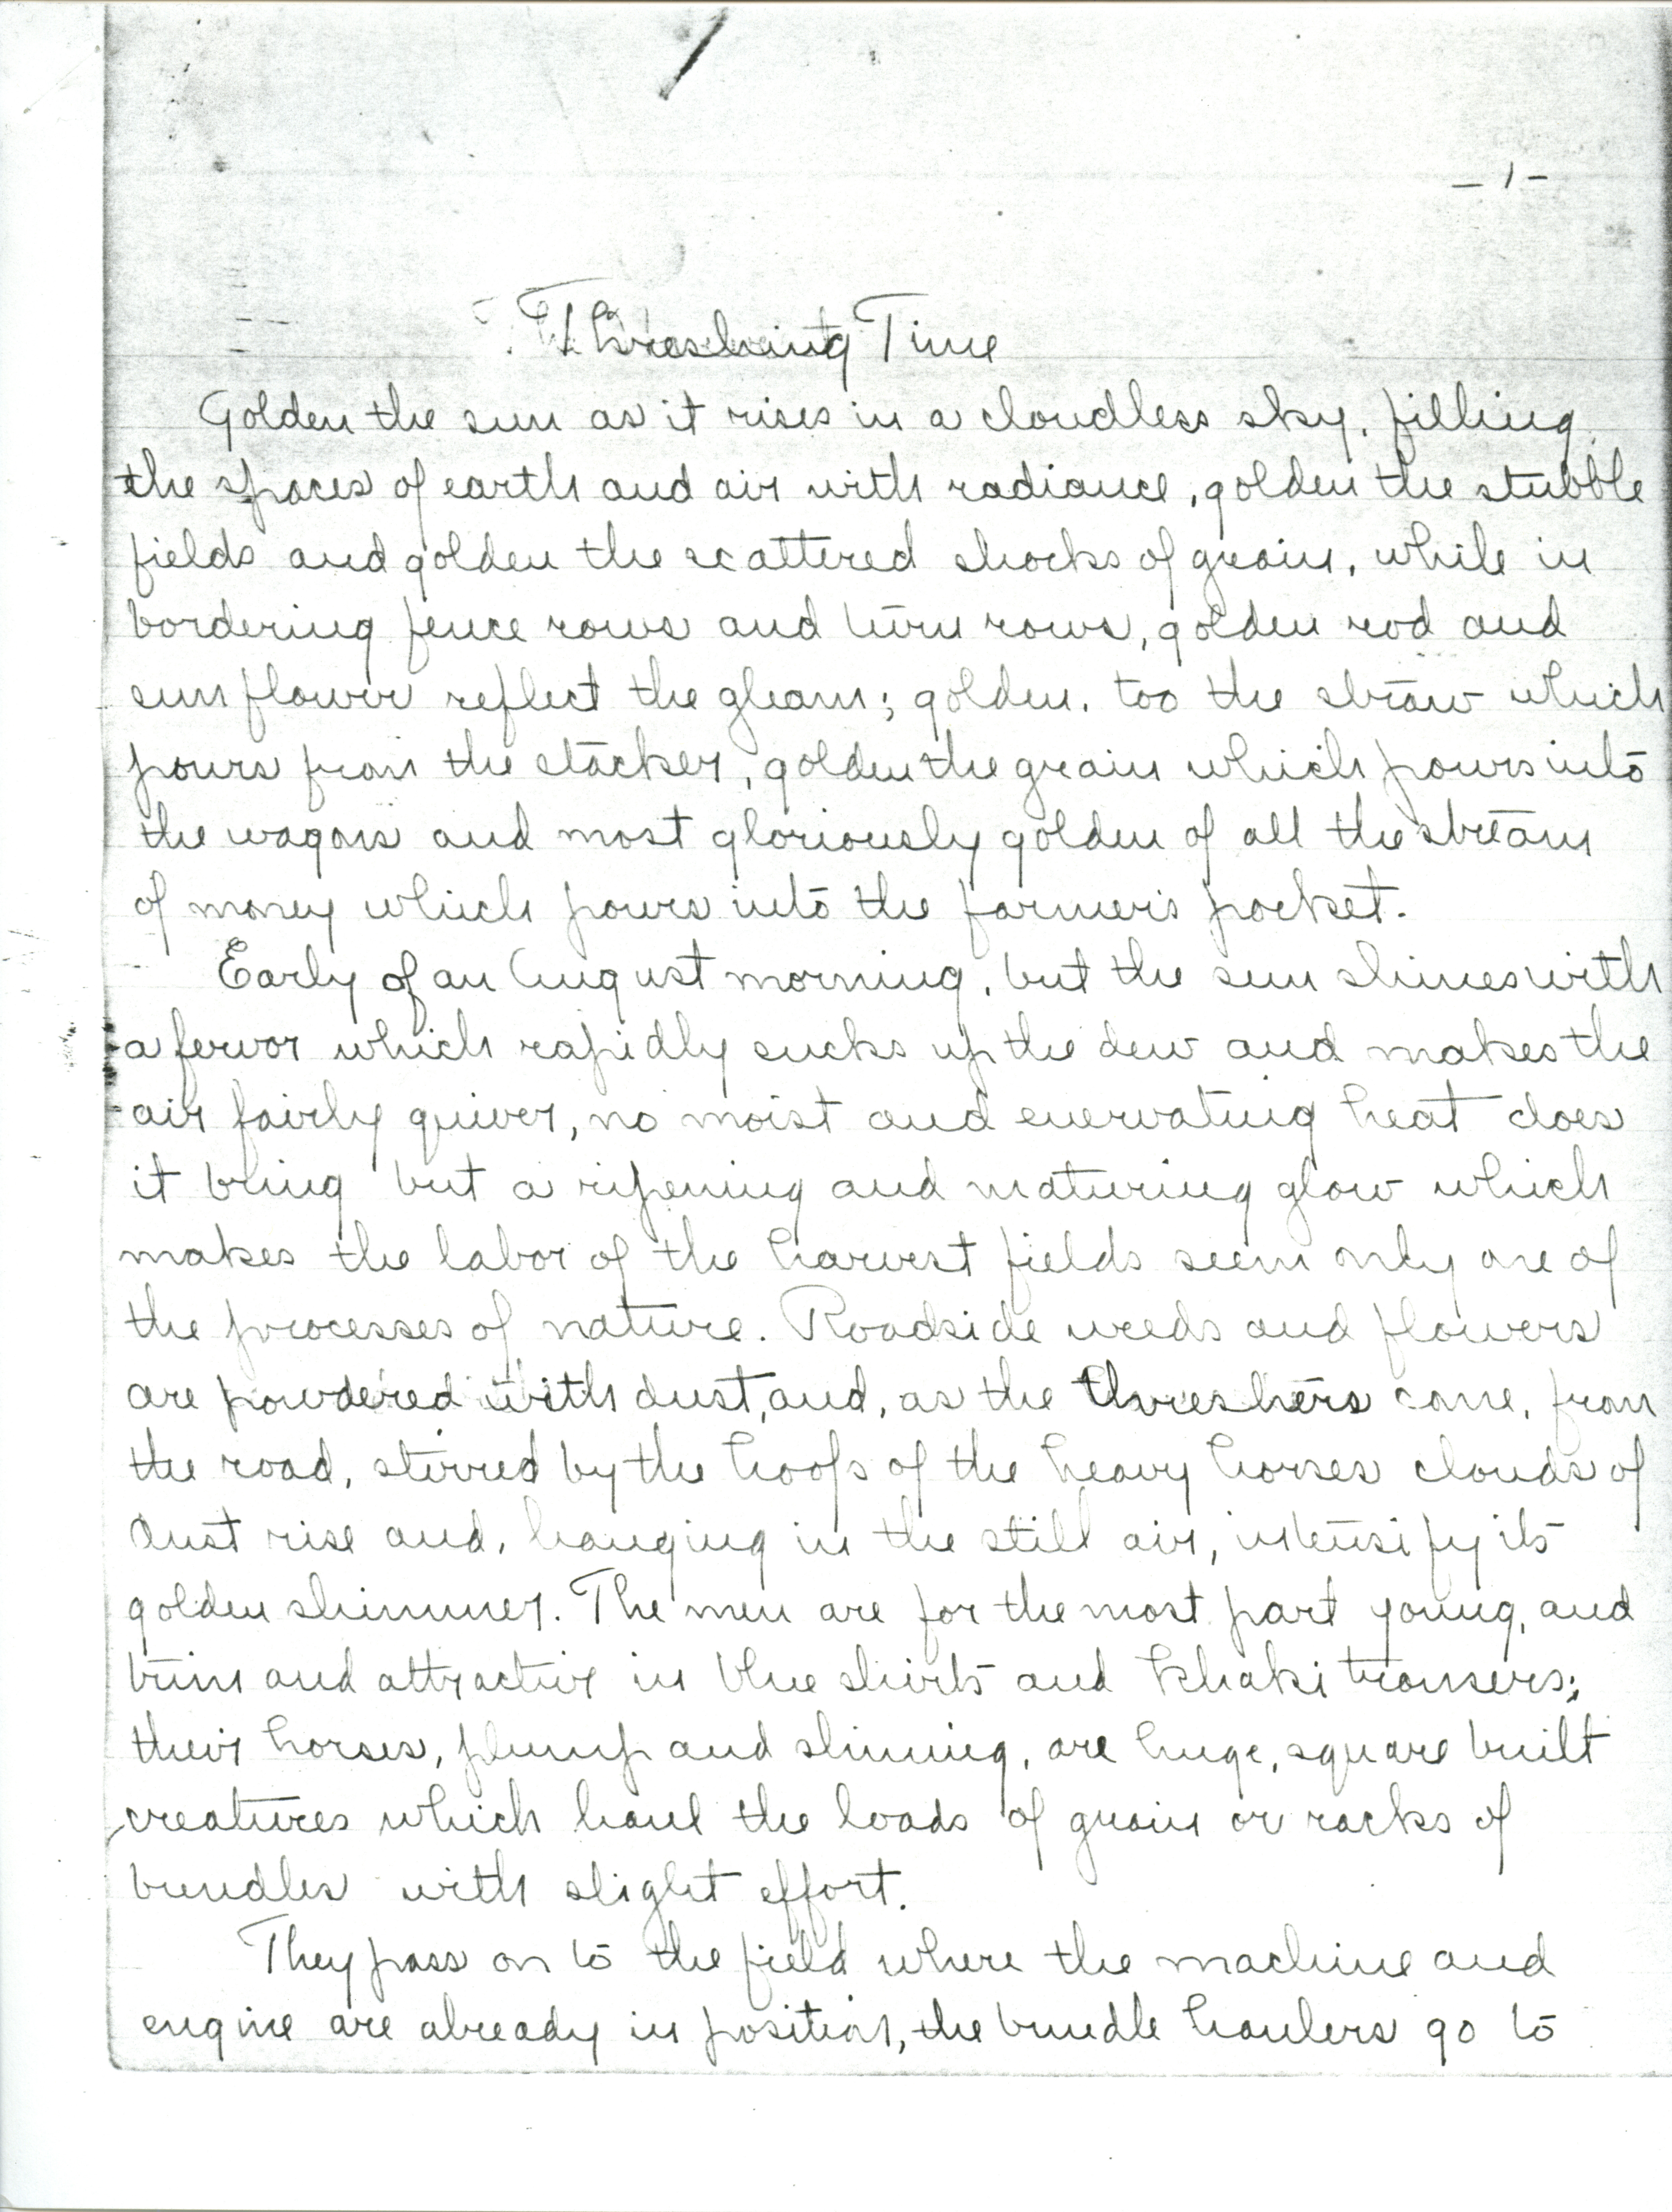 - 1 -
Threshing Time
Golden the sun as it rises in a cloudless sky, filling
the spaces of earth and air with radiance, golden the stubble
fields and golden the scattered shocks of grain, while in
bordering fence rows and turn rows, golden rod and
sunflower reflect the gleam; golden, too the straw which
pours from the stacker, golden the grain which pours into
the wagons and most gloriously golden of all the stream
of money which pours into the farmer's pocket.
Early of an August morning, but the sun shines with
a fervor which rapidly sucks up the dew and makes the
air fairly quiver, no moist and enervating heat does
it bring but a ripening and maturing glow which
makes the labor of the harvest fields seem only one of
the processes of nature. Roadside weeds and flowers
are powdered with dust, and, as the threshers come, from
the road, stirred by the hoofs of the heavy horses clouds of
dust rise and, hanging in the still air, intensify its
golden shimmer. The men are for the most part young, and
trim and attractive in blue shirts and khaki trousers;
their horses, plump and shining, are huge, square built
creatures which haul the loads of grain or racks of
bundles with slight effort.
They pass on to the field where the machine and
engine are already in position, the bundle haulers go to